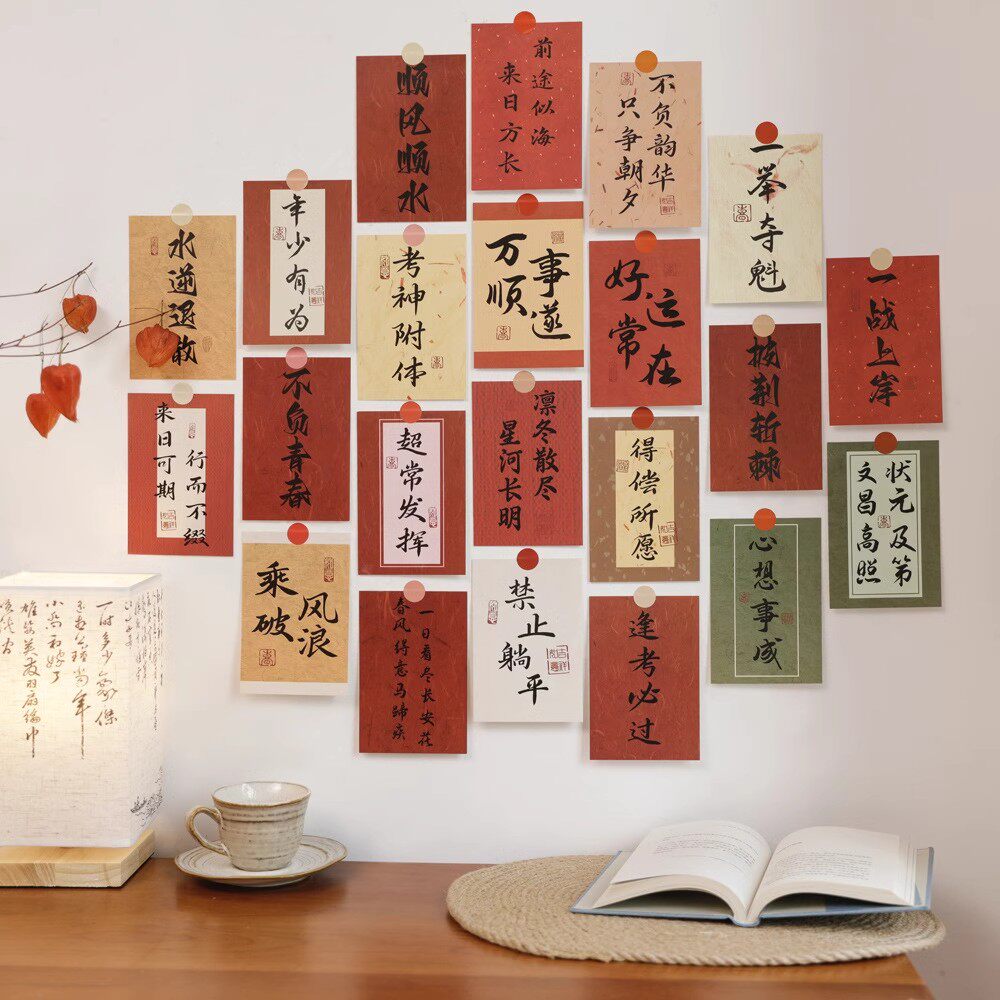 顺风顺水
前途似海
来日方长
不负韵华
只争朝夕
一举夺魁
水逆退散
年少有为
考神附体
万事
顺遂
好运
常在
一战上岸
来日可期
行而不缀
不负青春
超常发挥
凛冬散尽
星河长明
得偿所愿
披荆斩棘
状元及第
文昌高照
乘风
破浪
一日看尽长安花
春风得意马蹄疾
禁止
躺平
逢考必过
心想事成